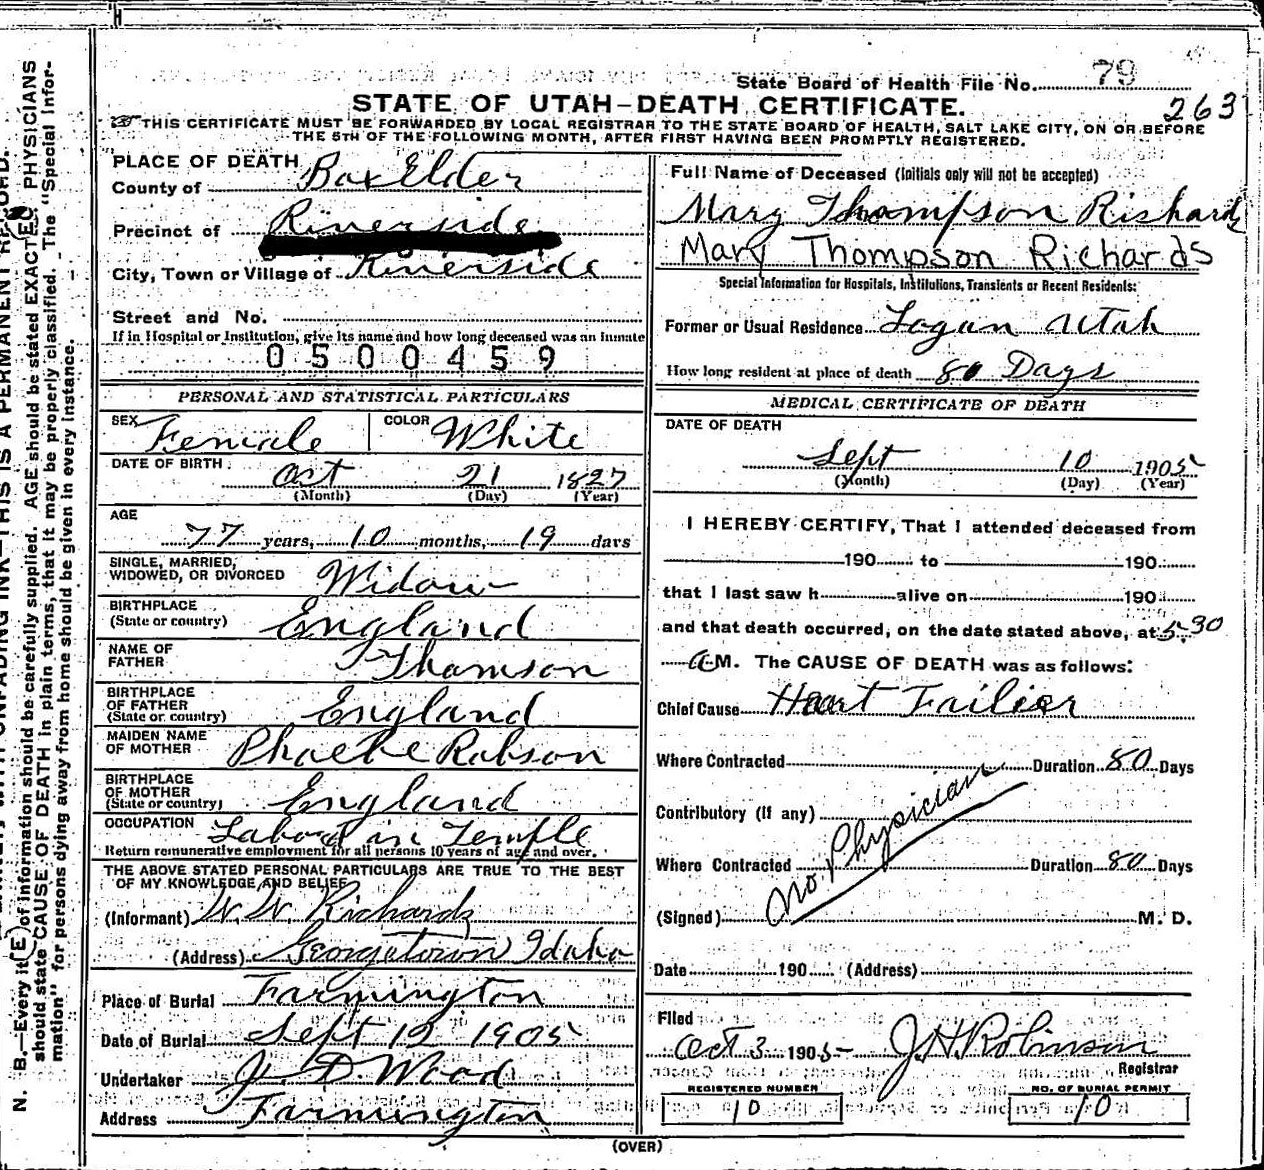 State Board of Health File No. 79
263
STATE OF UTAH–DEATH CERTIFICATE.
THIS CERTIFICATE MUST BE FORWARDED BY LOCAL REGISTRAR TO THE STATE BOARD OF HEALTH, SALT LAKE CITY, ON OR BEFORE
THE 5TH OF THE FOLLOWING MONTH, AFTER FIRST HAVING BEEN PROMPTLY REGISTERED.
PLACE OF DEATH
County of Box Elder
Precinct of Riverside
City, Town or Village of Riverside
Street and No.
If in Hospital or Institution, give its name and how long deceased was an inmate
0500459
PERSONAL AND STATISTICAL PARTICULARS
SEX Female COLOR White
DATE OF BIRTH Oct 21 1827
(Month) (Day) (Year)
AGE
77 years, 10 months, 19 days
SINGLE, MARRIED,
WIDOWED, OR DIVORCED Widow
BIRTHPLACE
(State or country) England
NAME OF
FATHER Thomson
BIRTHPLACE
OF FATHER
(State or country) England
MAIDEN NAME
OF MOTHER Phoebe Robson
BIRTHPLACE
OF MOTHER
(State or country) England
OCCUPATION Labord in Temple
Return remunerative employment for all persons 10 years of age and over.
THE ABOVE STATED PERSONAL PARTICULARS ARE TRUE TO THE BEST
OF MY KNOWLEDGE AND BELIEF
(Informant) W. W. Richards
(Address) Georgetown Idaho
Place of Burial Farmington
Date of Burial Sept 12 1905
Undertaker J. D. Wood
Address Farmington
Full Name of Deceased (Initials only will not be accepted)
Mary Thompson Richards
Mary Thompson Richards
Special Information for Hospitals, Institutions, Transients or Recent Residents:
Former or Usual Residence Logan Utah
How long resident at place of death 80 Days
MEDICAL CERTIFICATE OF DEATH
DATE OF DEATH
Sept 10 1905
(Month) (Day) (Year)
I HEREBY CERTIFY, That I attended deceased from
190 to 190
that I last saw h alive on 190
and that death occurred, on the date stated above, at 5-30
a M. The CAUSE OF DEATH was as follows:
Chief Cause Heart Failier
Where Contracted Duration 80 Days
Contributory (if any)
No Physician
Where Contracted Duration 80 Days
(Signed) M. D.
Date 190 (Address)
Filed
Oct 3 1905 J. H. Robinson
Registrar
REGISTERED NUMBER NO. OF BURIAL PERMIT
10 10
(OVER)
N. B.—Every it(E) of information should be carefully supplied. AGE should be stated EXACTLY. PHYSICIANS
should state CAUSE OF DEATH in plain terms, that it may be properly classified. The "Special Infor-
mation" for persons dying away from home should be given in every instance.